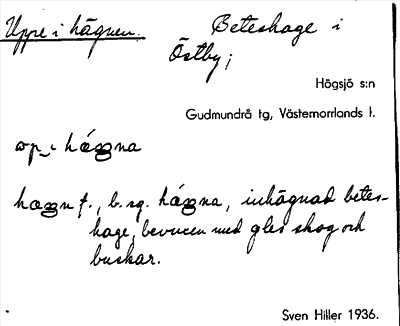 Uppe i hägnen. Beteshage i
Östby;
Högsjö s:n
Gudmundrå tg, Västernorrlands l.
hægn f., b. sg. hǽgna, inhägnad betes-
hage, bevuxen med gles skog och
buskar.
Sven Hiller 1936.